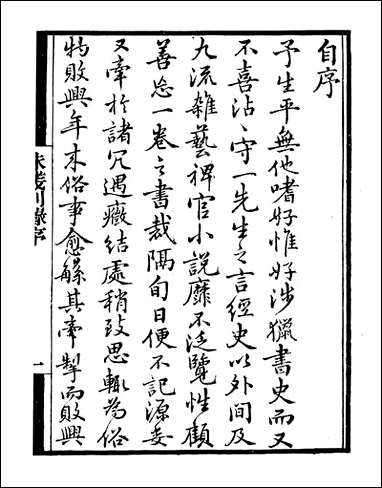 自序
予生平無他嗜好惟好涉獵書史而又
不喜沾沾守一先生之言經史以外間及
九流雜藝稗官小說靡不泛覽性顧
善忘一卷之書裁隔旬日便不記源委
又牽於諸冗遇癥結處稍致思輒為俗
物敗興年來俗事愈緐其牽掣而敗興
序
一